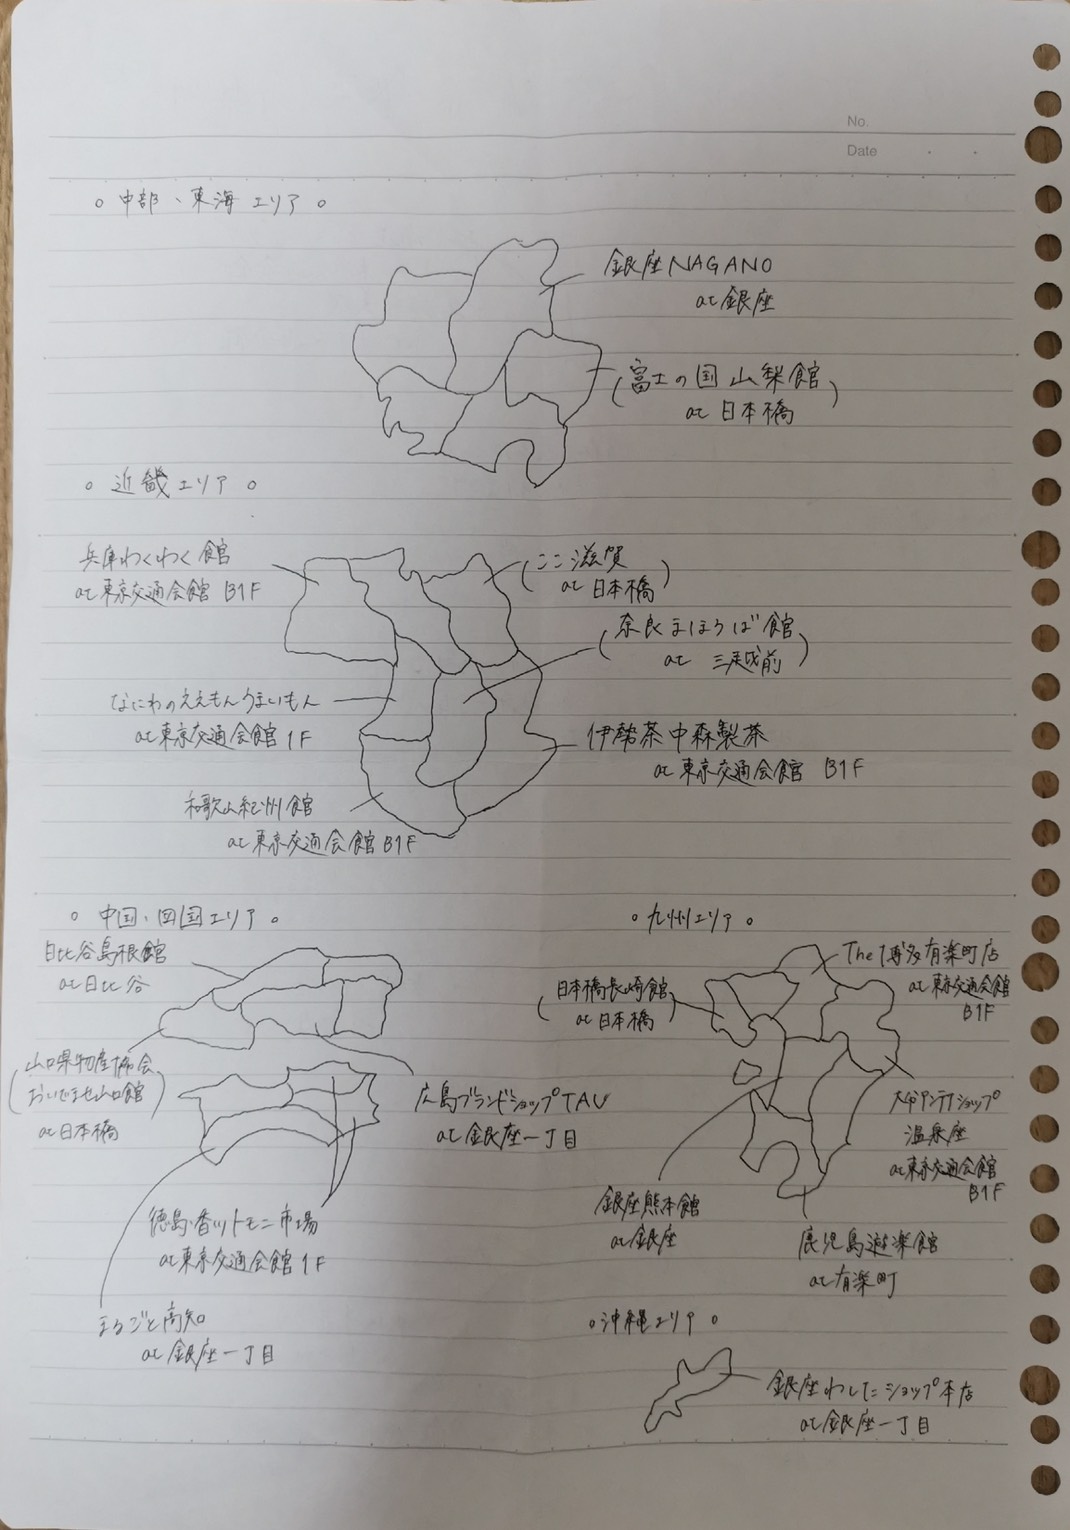 No.
Date
○ 中部、東海エリア ○
銀座NAGANO
at 銀座
(富士の国山梨館
at 日本橋)
○ 近畿エリア ○
兵庫わくわく館
at 東京交通会館 B1F
(ここ滋賀
at 日本橋)
(奈良まほろば館
at 三越前)
なにわのええもんうまいもん
at 東京交通会館 1F
伊勢茶中森製茶
at 東京交通会館 B1F
和歌山紀州館
at 東京交通会館 B1F
○ 中国、四国エリア ○
日比谷島根館
at 日比谷
(山口県物産協会
おいでませ山口館)
at 日本橋
広島ブランドショップTAU
at 銀座一丁目
徳島・香川トモニ市場
at 東京交通会館 1F
まるごと高知
at 銀座一丁目
○ 九州エリア ○
The博多有楽町店
at 東京交通会館
B1F
(日本橋長崎館
at 日本橋)
大分アンテナショップ
温泉座
at 東京交通会館
B1F
銀座熊本館
at 銀座
鹿児島遊楽館
at 有楽町
○沖縄エリア ○
銀座わしたショップ本店
at 銀座一丁目